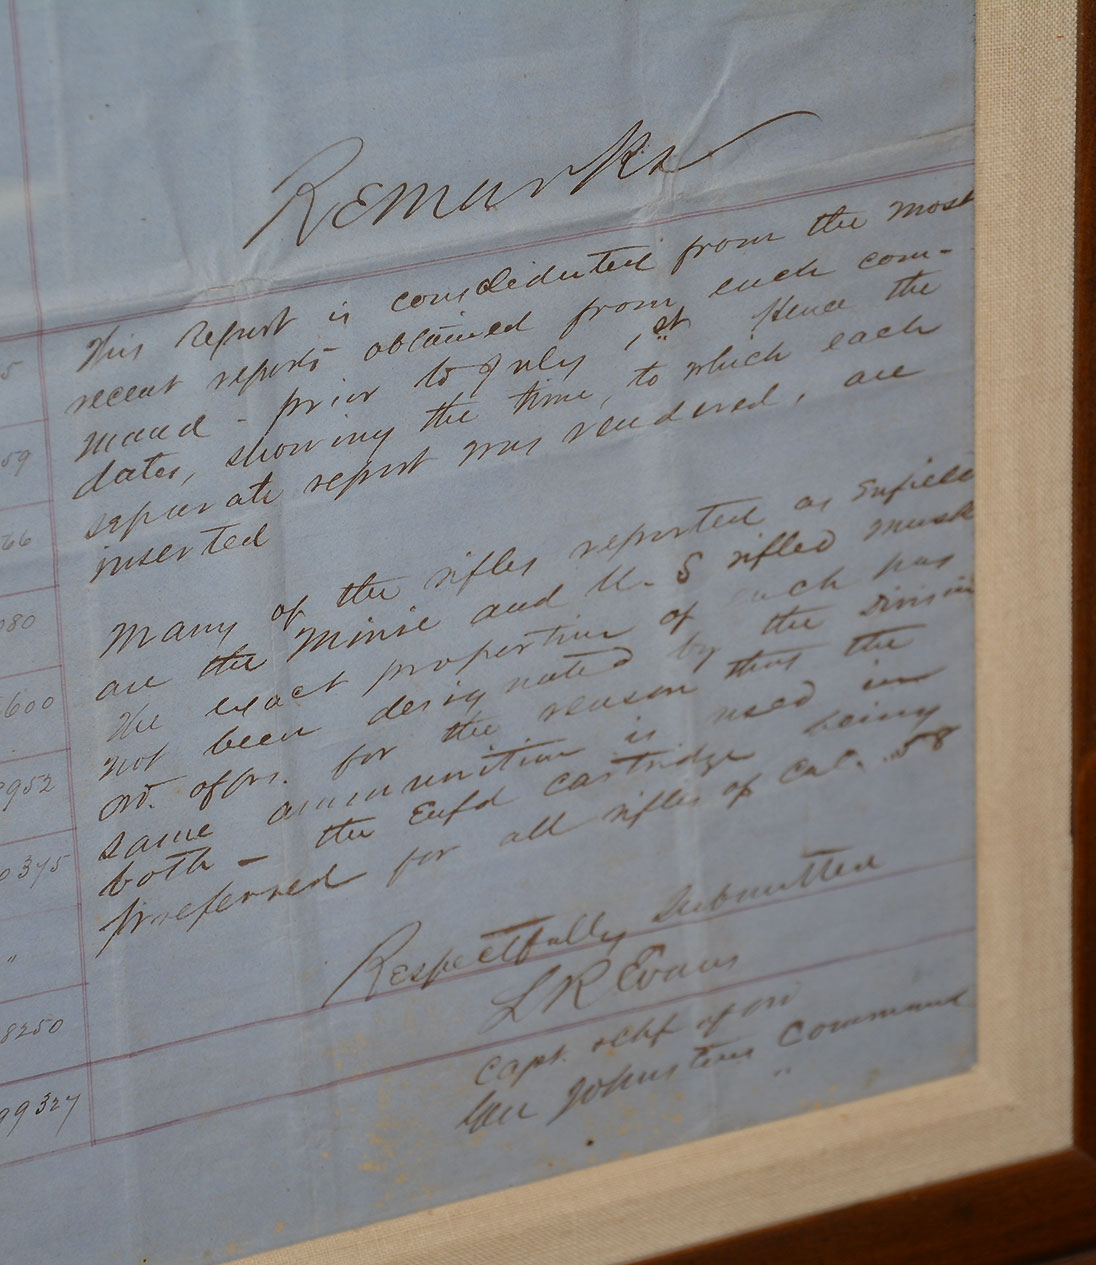 Remarks
This Report is consolidated from the most
recent reports obtained from each com-
mand - prior to July 1st Hence the
dates, showing the time, to which each
separate report was rendered, are
inserted
Many of the rifles reported as Enfield
are the Minie and U. S rifled musk
The exact proportion of each has
not been designated by the Division
Ord. offrs. for the reason that the
same ammunition is used in
both - the Enfd cartridge being
preferred for all rifles of Cal. .58
Respectfully Submitted
L R Evans
Capt. & Chf of Ord
Gen Johnstons Command
5
59
66
080
600
2952
0375
"
8250
99327